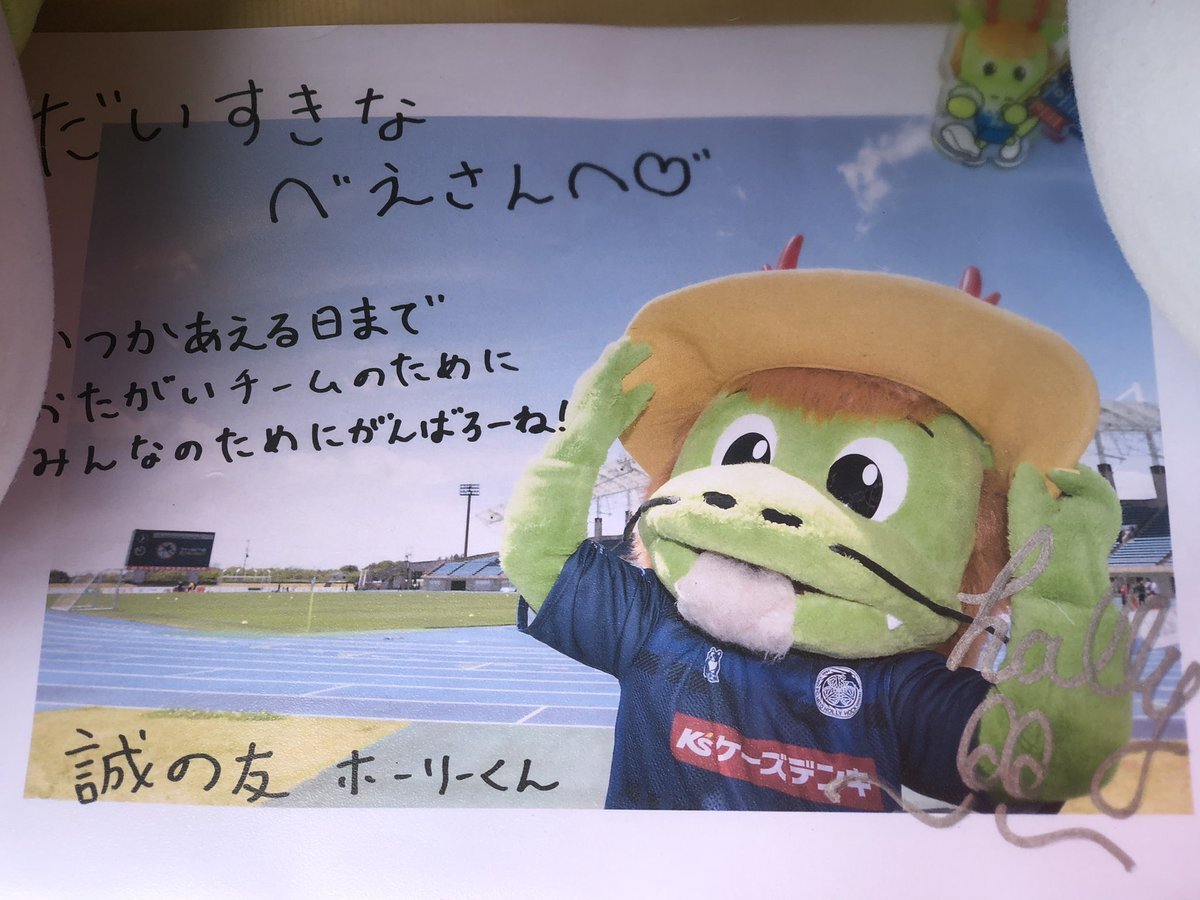 だいすきな
べえさんへ♡
いつかあえる日まで
おたがいチームのために
みんなのためにがんばろーね!
誠の友 ホーリーくん
K's ケーズデンキ
holly